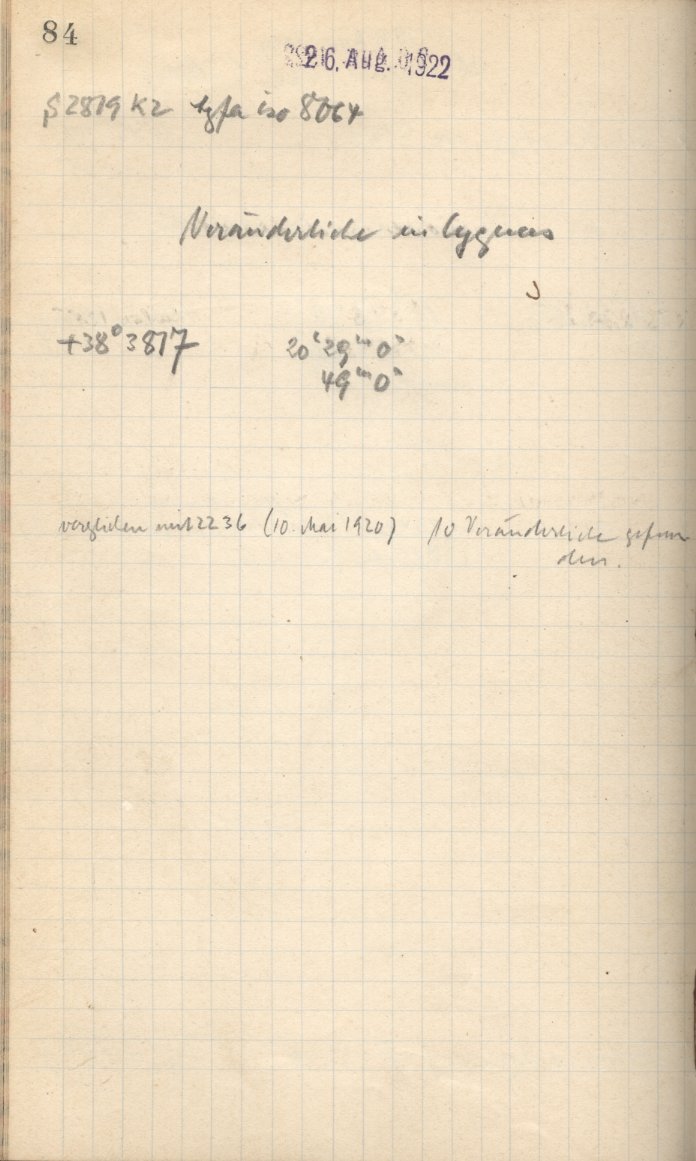 84
26. Aug. 1922
2819 K2 Agfa iso 8064
Veränderliche in Cygnus
+38° 3817 20ʰ 29ᵐ 0ˢ
49ᵐ 0ˢ
verglichen mit 2236 (10. Mai 1920) 10 Veränderliche gefun
den.